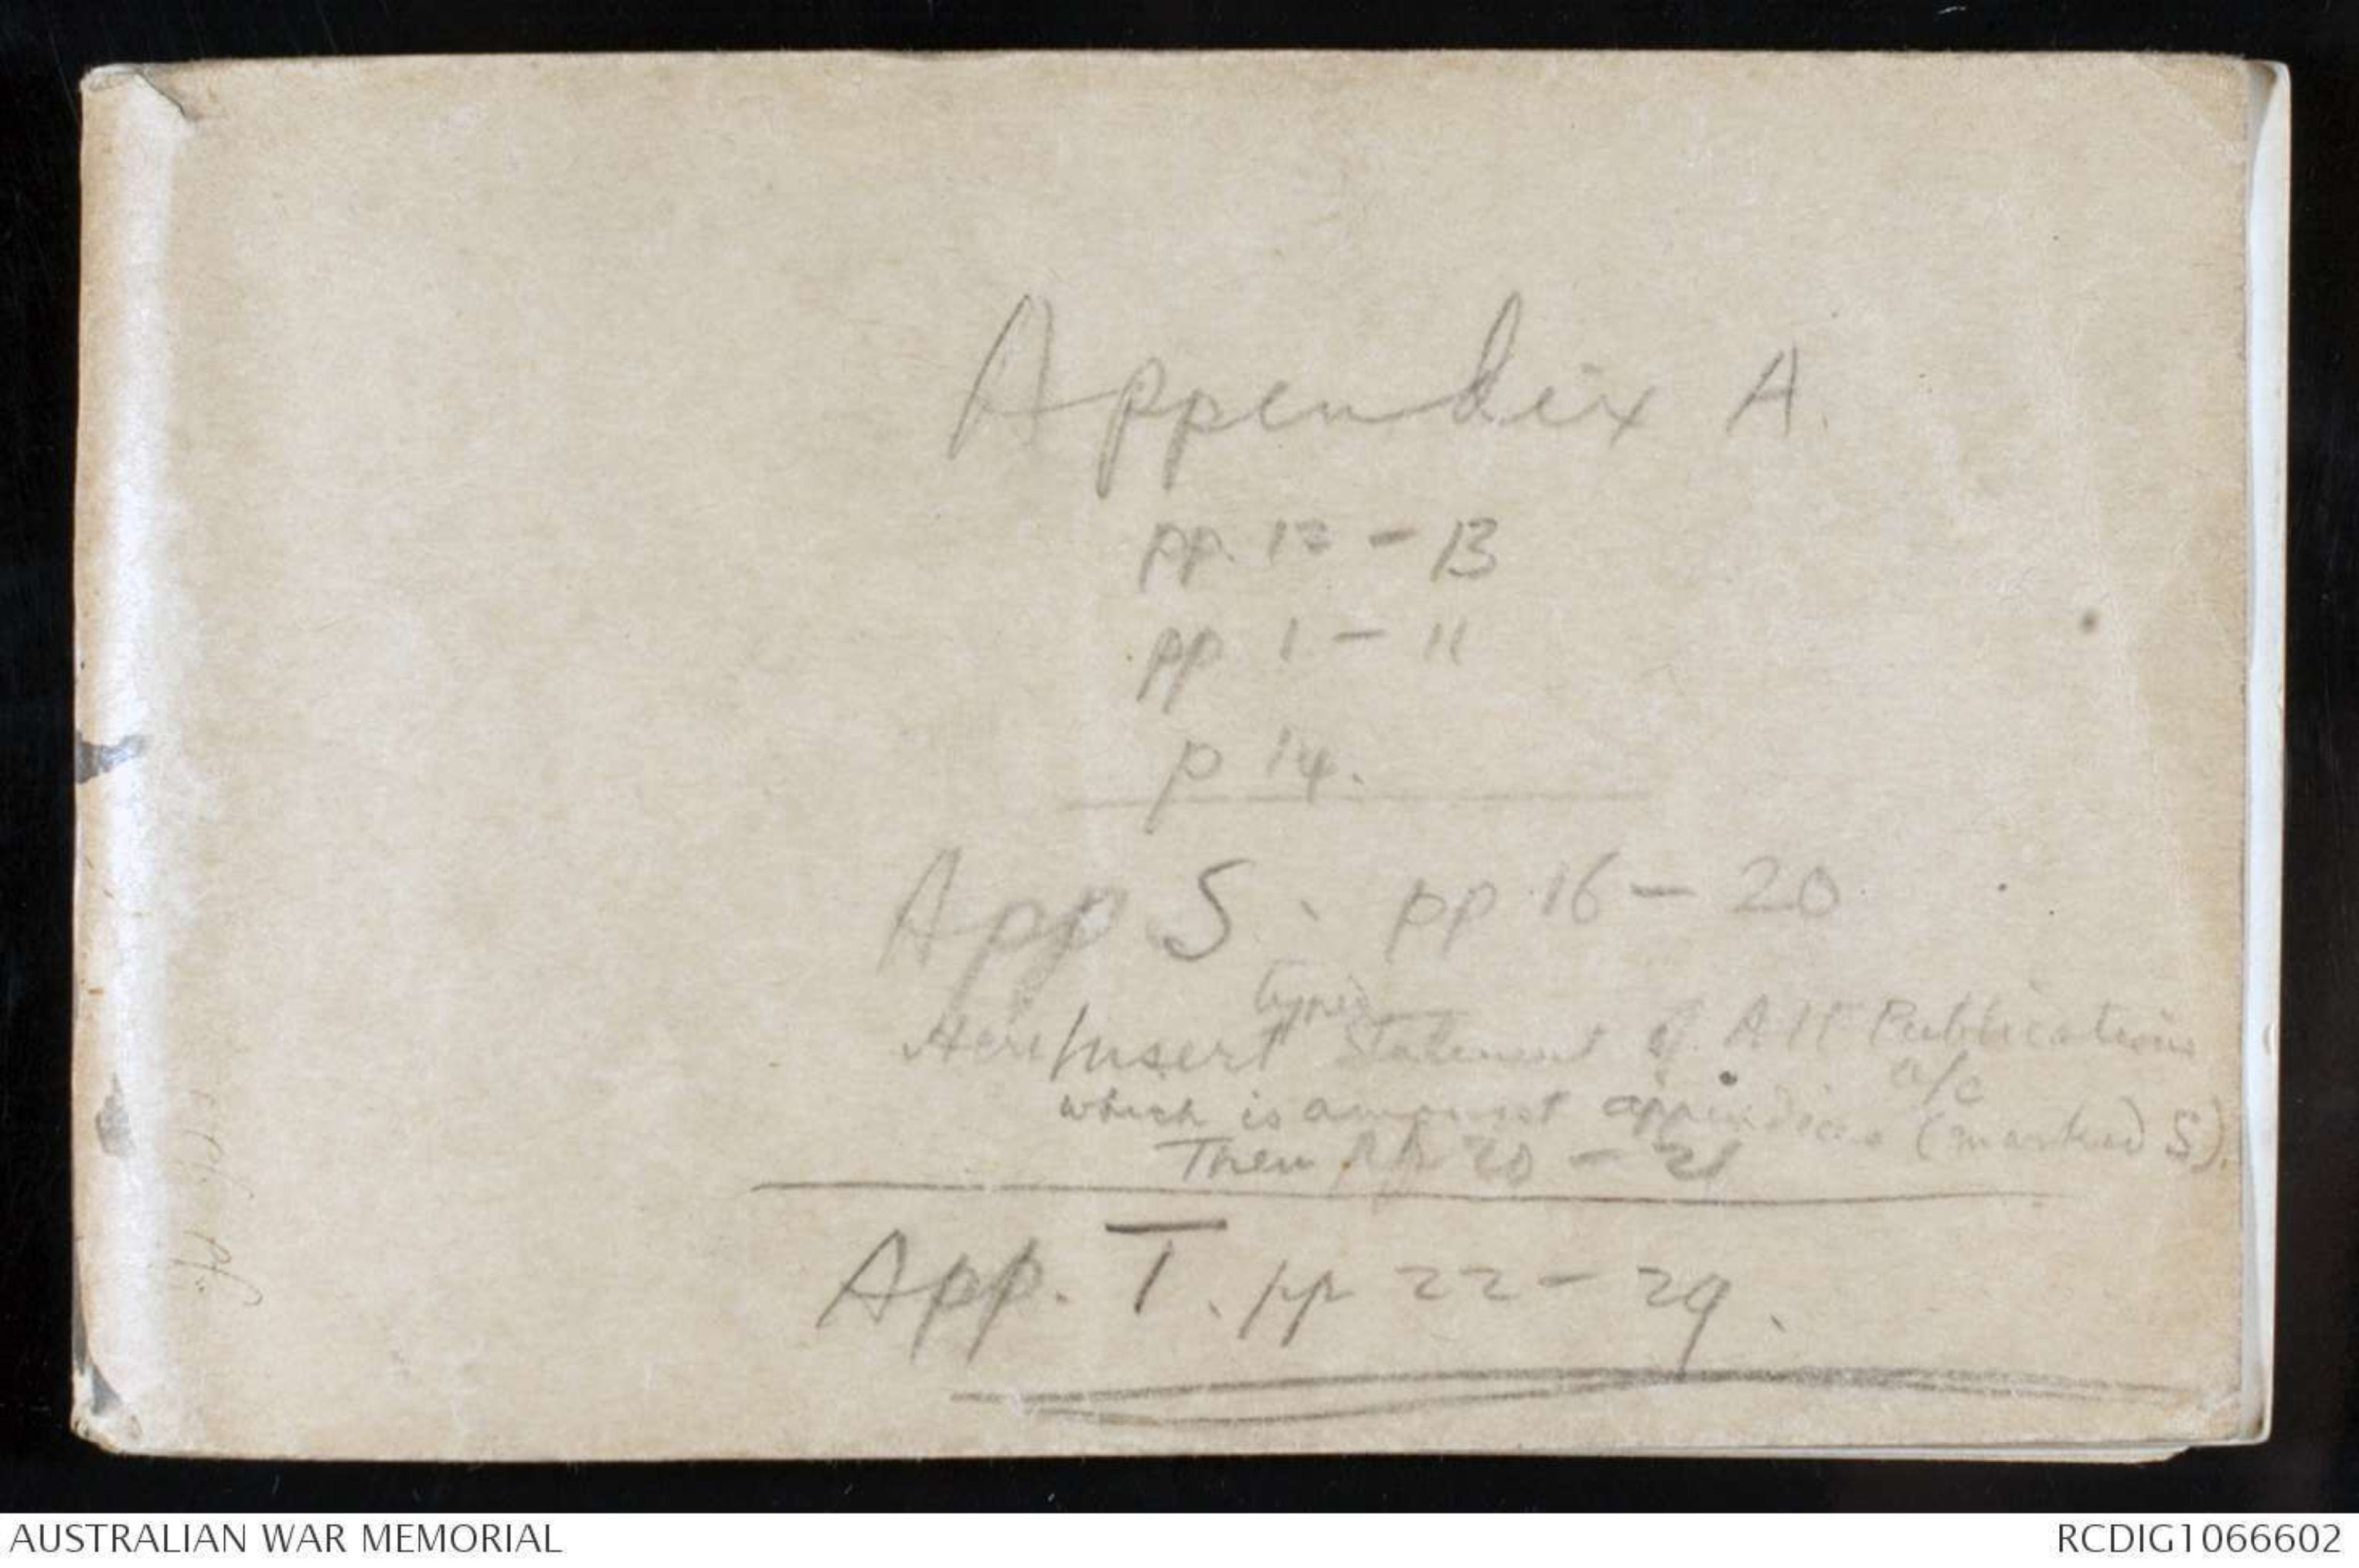 Appendix A.
pp. 12 - 13
pp 1 - 11
p 14.
App S. pp 16 - 20
typed
Here Insert Statement of AIF Publications
a/c
which is amongst appendices (marked S).
Then pp 20 - 21
App. T. pp 22 - 29.
AUSTRALIAN WAR MEMORIAL
RCDIG1066602